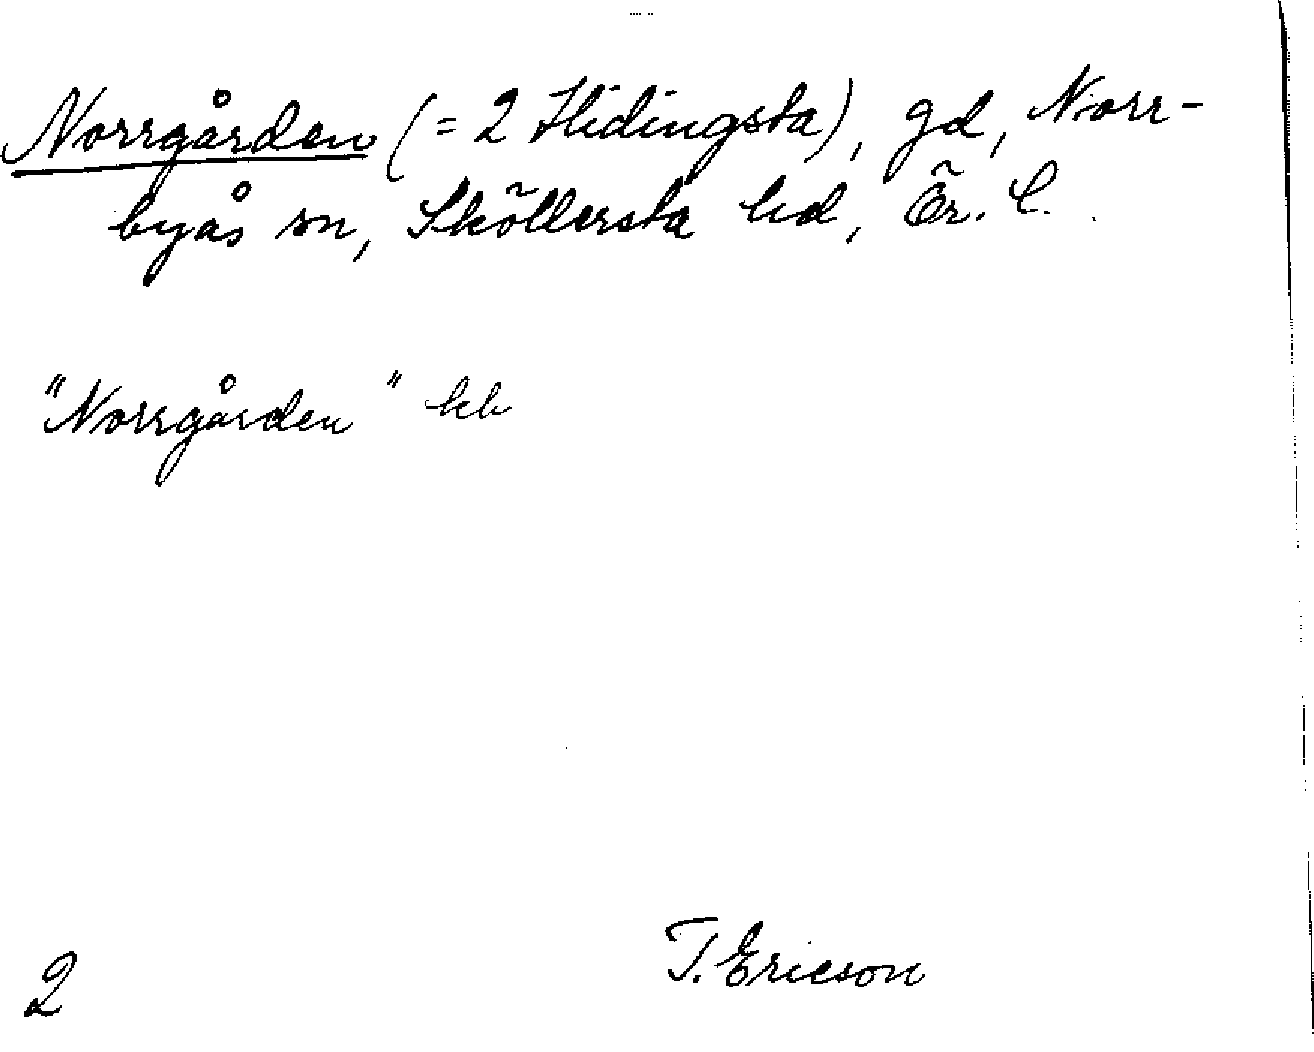 Norrgården (= 2 Hidingsta), gd, Norr-
byås sn, Sköllersta hd, Ör. l.
"Norrgården" kb
T. Ericson
2